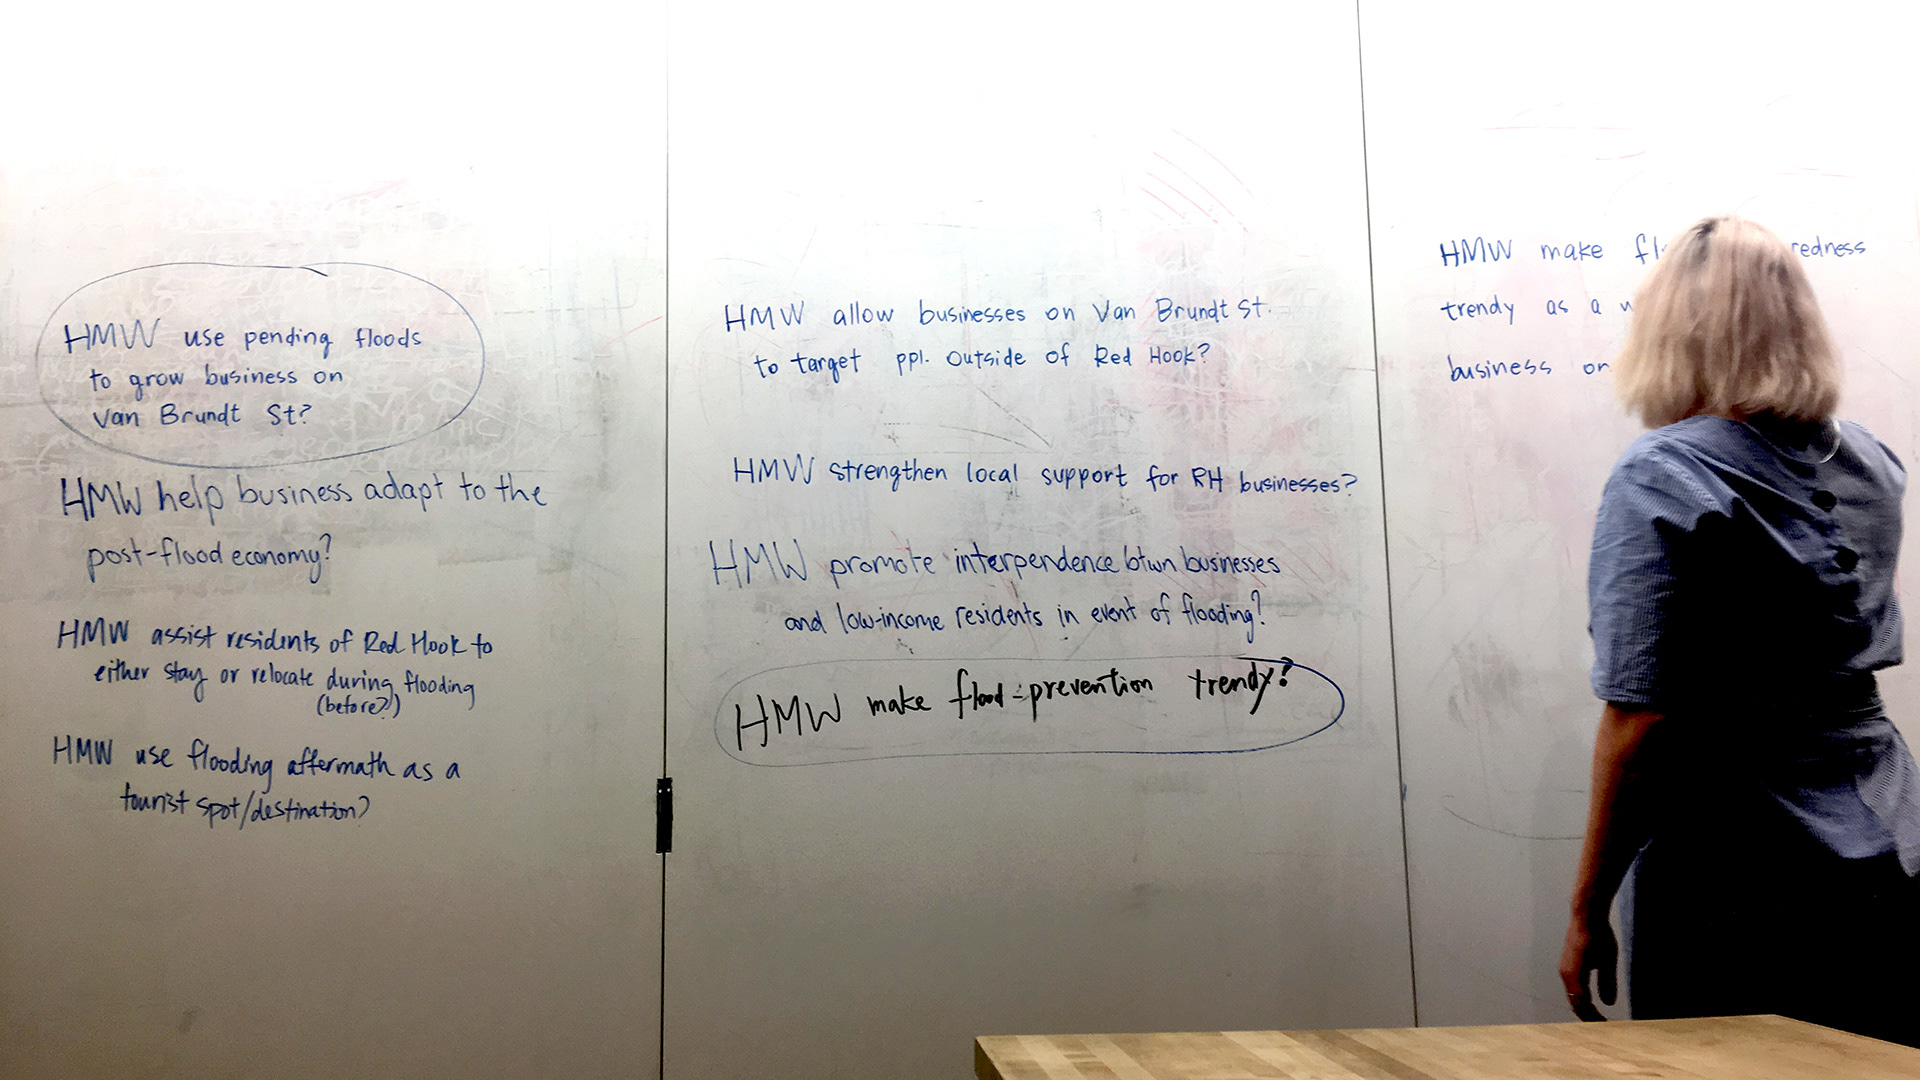 HMW use pending floods
to grow business on
Van Brundt St?
HMW help business adapt to the
post-flood economy?
HMW assist residents of Red Hook to
either stay or relocate during flooding
(before?)
HMW use flooding aftermath as a
tourist spot/destination?
HMW allow businesses on Van Brundt St.
to target ppl. outside of Red Hook?
HMW strengthen local support for RH businesses?
HMW promote interpendence btwn businesses
and low-income residents in event of flooding?
HMW make flood-prevention trendy?
HMW make
trendy as a
business on